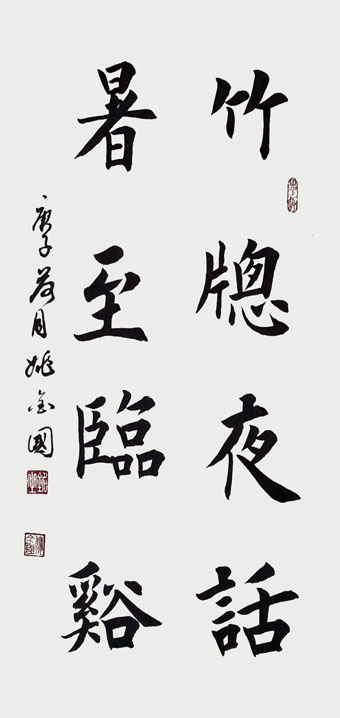 竹牕夜話
暑至臨谿
庚子荷月姚金國